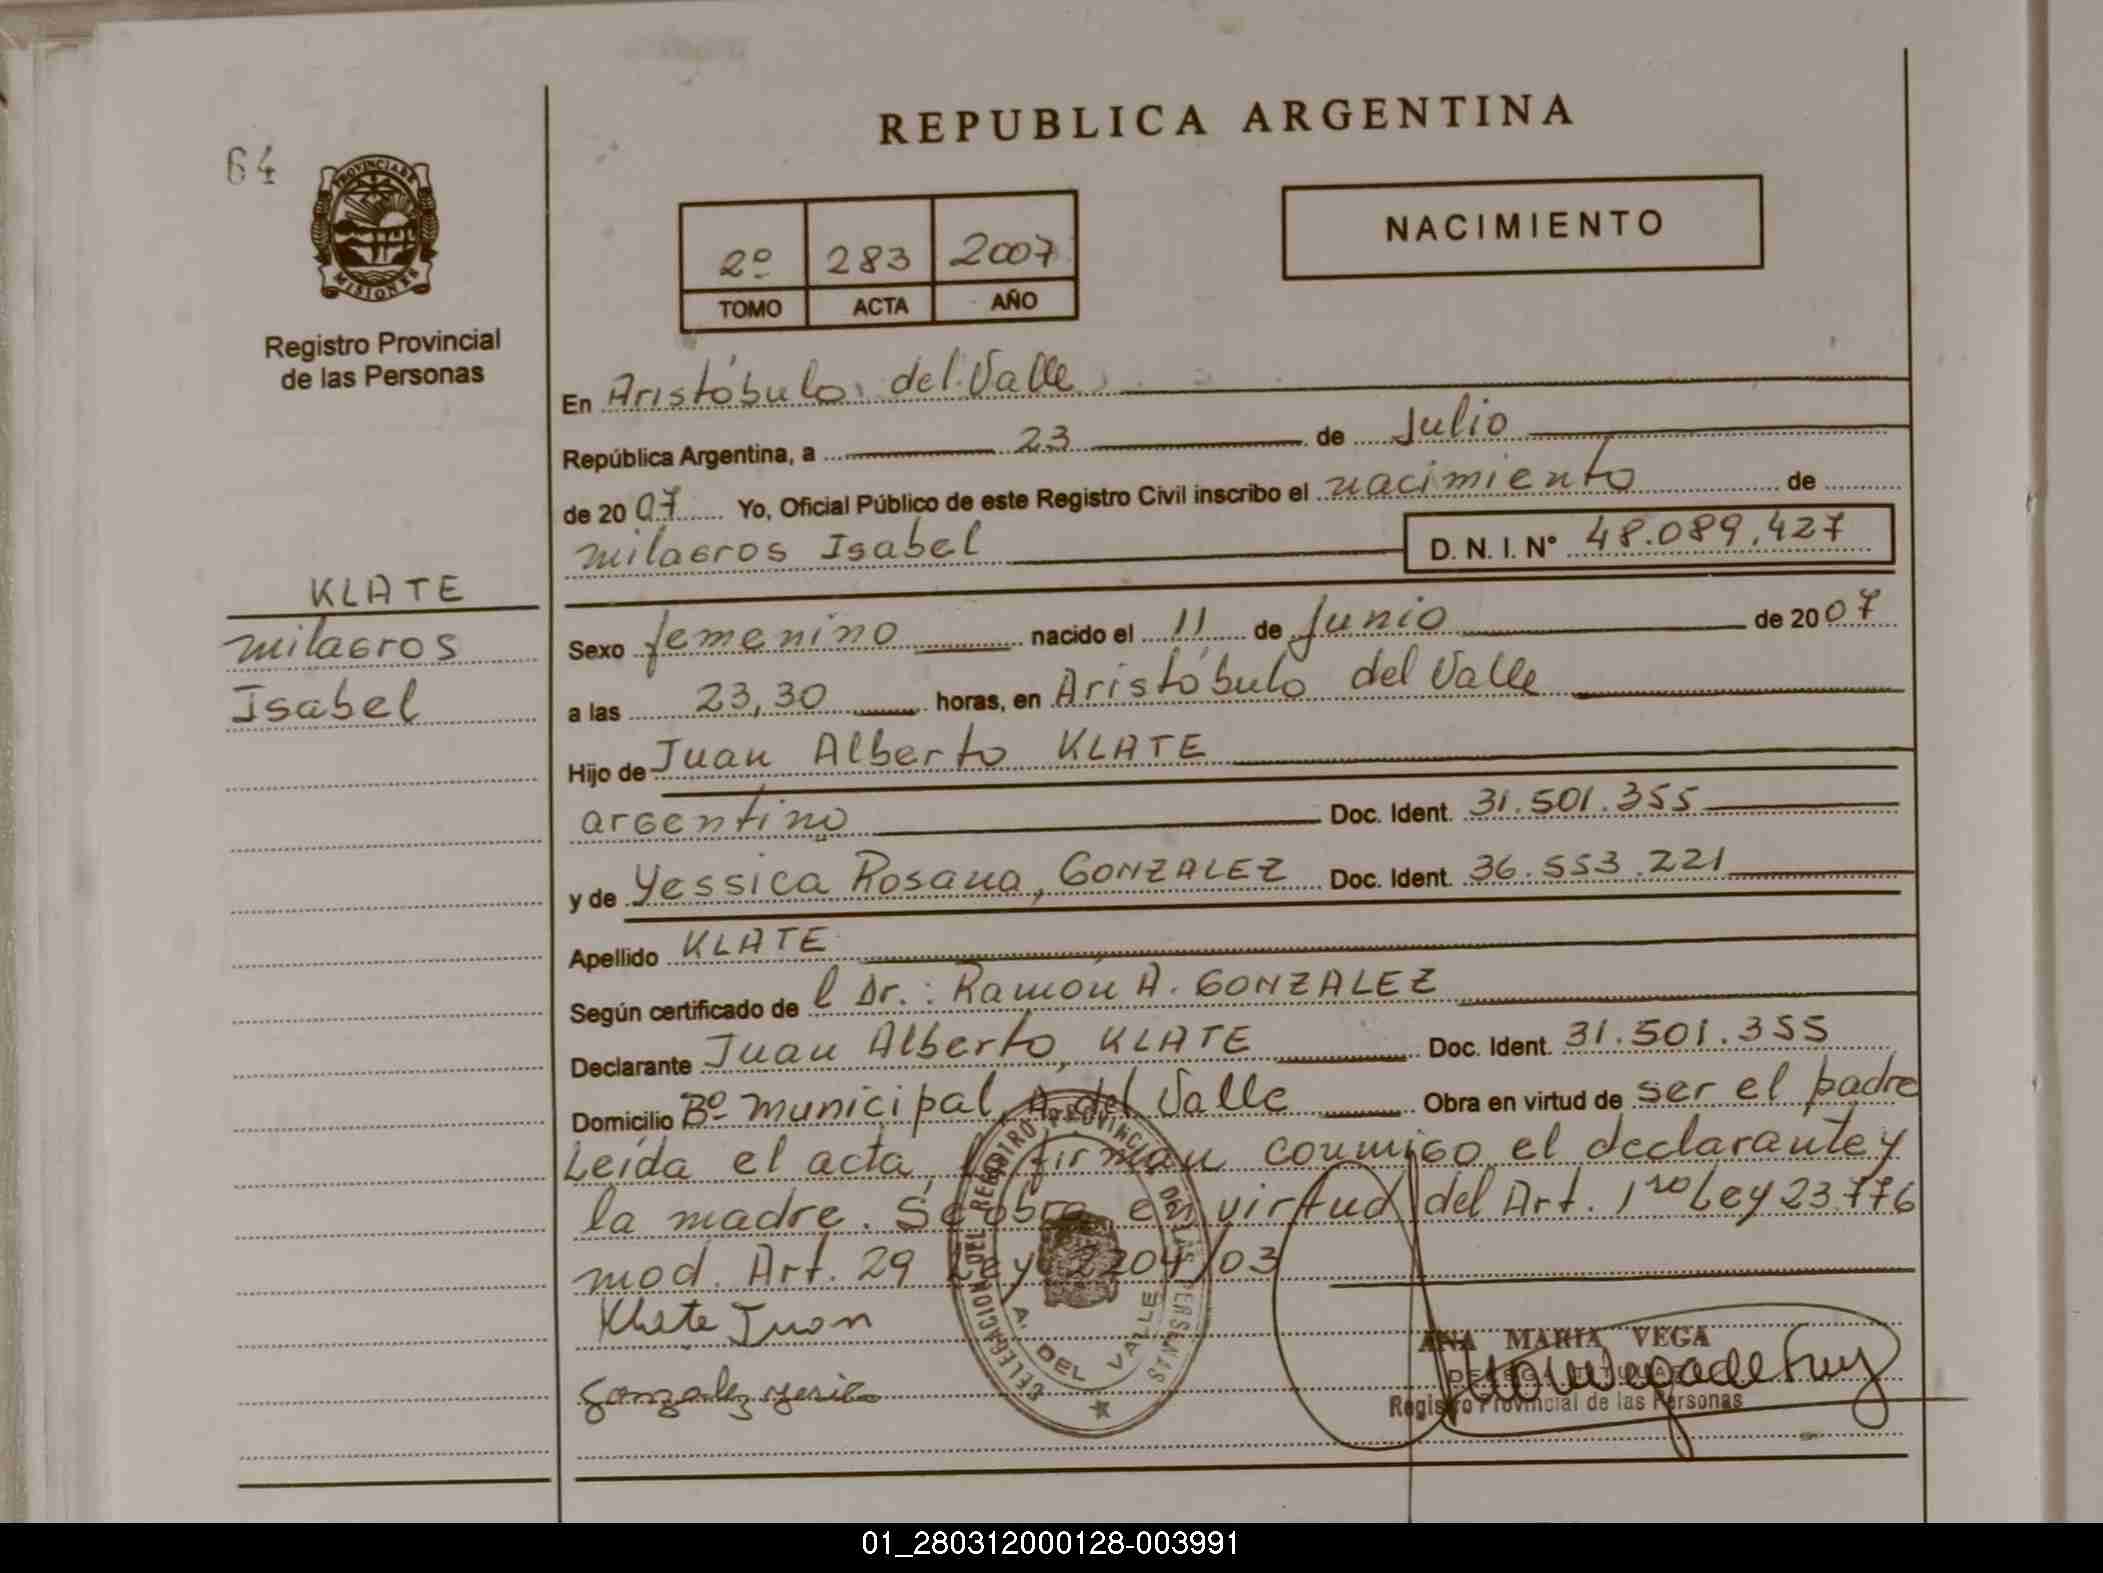 REPUBLICA ARGENTINA
64
PROVINCIA DE
MISIONES
Registro Provincial
de las Personas
2º 283 2007
TOMO ACTA AÑO
NACIMIENTO
En Aristóbulo del Valle
República Argentina, a 23 de Julio
de 2007 Yo, Oficial Público de este Registro Civil inscribo el nacimiento de
milagros Isabel D. N. I. Nº 48.089.427
KLATE
milagros
Isabel
Sexo femenino nacido el 11 de Junio de 2007
a las 23,30 horas, en Aristóbulo del Valle
Hijo de Juan Alberto KLATE
argentino Doc. Ident. 31.501.355
y de Yessica Rosana, GONZALEZ Doc. Ident. 36.553.221
Apellido KLATE
Según certificado de l Dr.: Ramón A. GONZALEZ
Declarante Juan Alberto, KLATE Doc. Ident. 31.501.355
Domicilio Bº municipal, A. del Valle Obra en virtud de ser el padre
Leída el acta, firman conmigo el declarante y
la madre. Se obra en virtud del Art. 1ro Ley 23.776
mod. Art. 29 Ley 2204/03
Klate Juan
Gonzalez Yesica
DELEGACION DEL REGISTRO PROVINCIAL DE LAS PERSONAS
A. DEL VALLE
ANA MARIA VEGA
Registro Provincial de las Personas
01_280312000128-003991